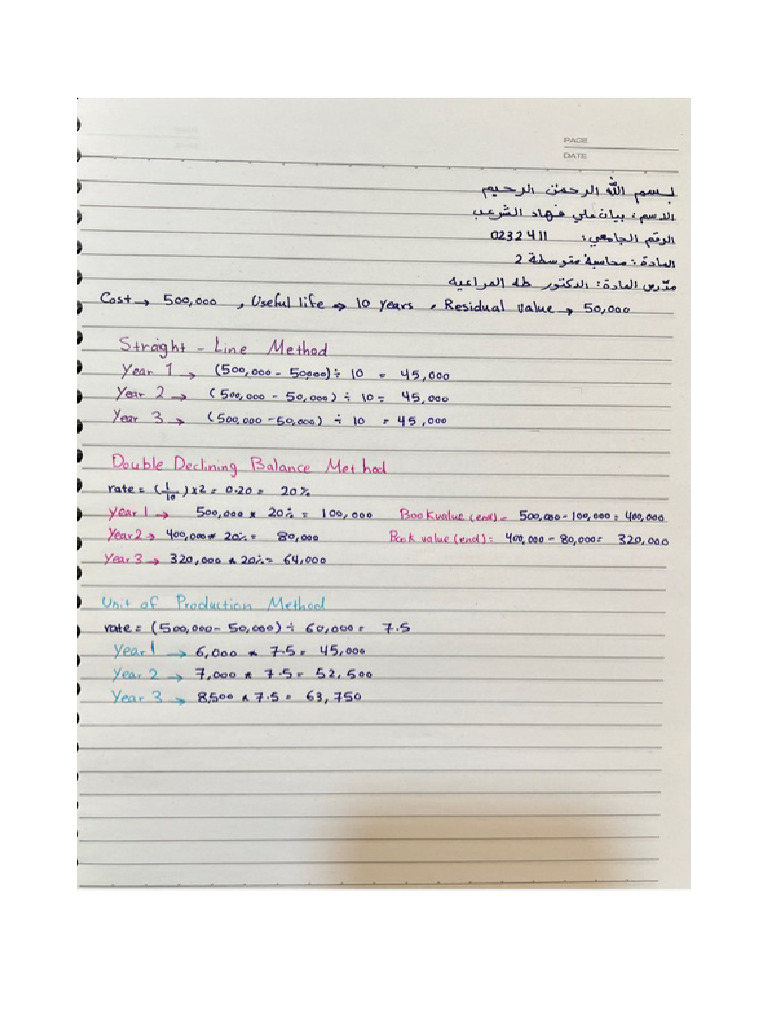 PAGE
DATE
بسم الله الرحمن الرحيم
الاسم: بيان علي فهاد الشرعب
الرقم الجامعي: 0232411
المادة: محاسبة متوسطة 2
مدرس المادة: الدكتور طه المراعيه
Cost → 500,000 , Useful life → 10 years , Residual value → 50,000
Straight - Line Method
Year 1 → (500,000 - 50,000) ÷ 10 = 45,000
Year 2 → (500,000 - 50,000) ÷ 10 = 45,000
Year 3 → (500,000 - 50,000) ÷ 10 = 45,000
Double Declining Balance Method
rate = (1/10) × 2 = 0.20 = 20%
Year 1 → 500,000 × 20% = 100,000 Book value (end) = 500,000 - 100,000 = 400,000
Year 2 → 400,000 × 20% = 80,000 Book value (end) = 400,000 - 80,000 = 320,000
Year 3 → 320,000 × 20% = 64,000
Unit of Production Method
rate = (500,000 - 50,000) ÷ 60,000 = 7.5
Year 1 → 6,000 × 7.5 = 45,000
Year 2 → 7,000 × 7.5 = 52,500
Year 3 → 8,500 × 7.5 = 63,750